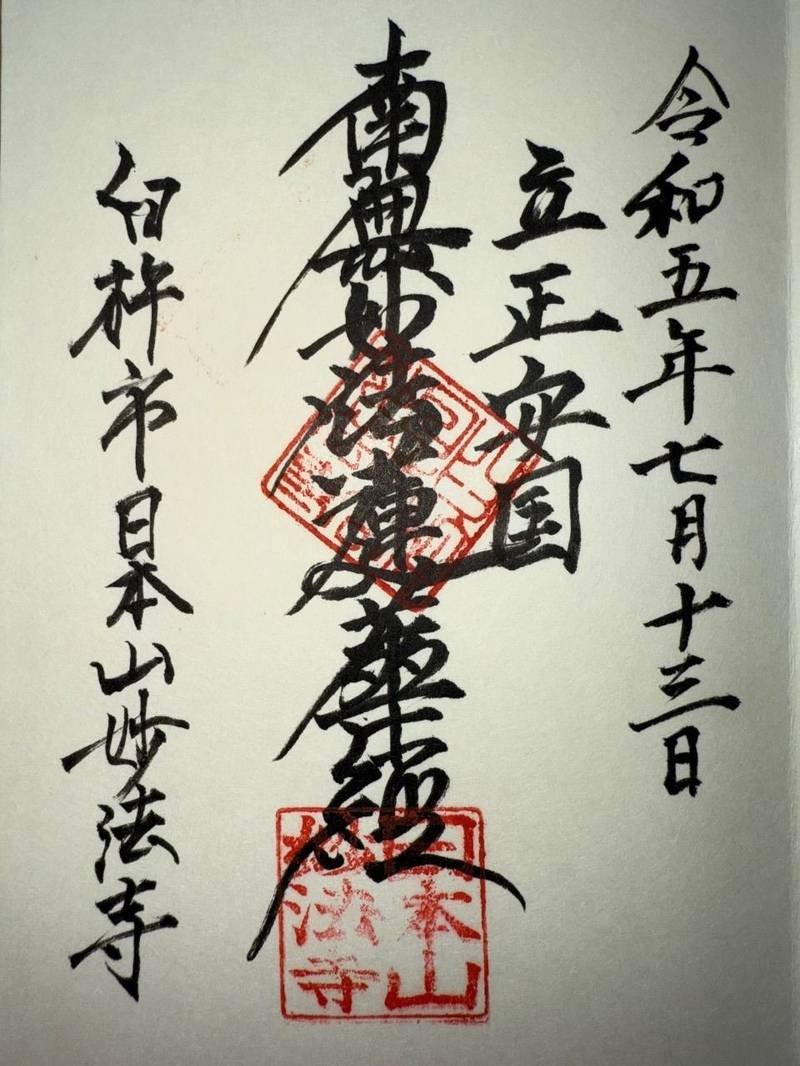 令和五年七月十三日
立正安国
南無妙法蓮華經
臼杵市日本山妙法寺
日本山
妙法寺